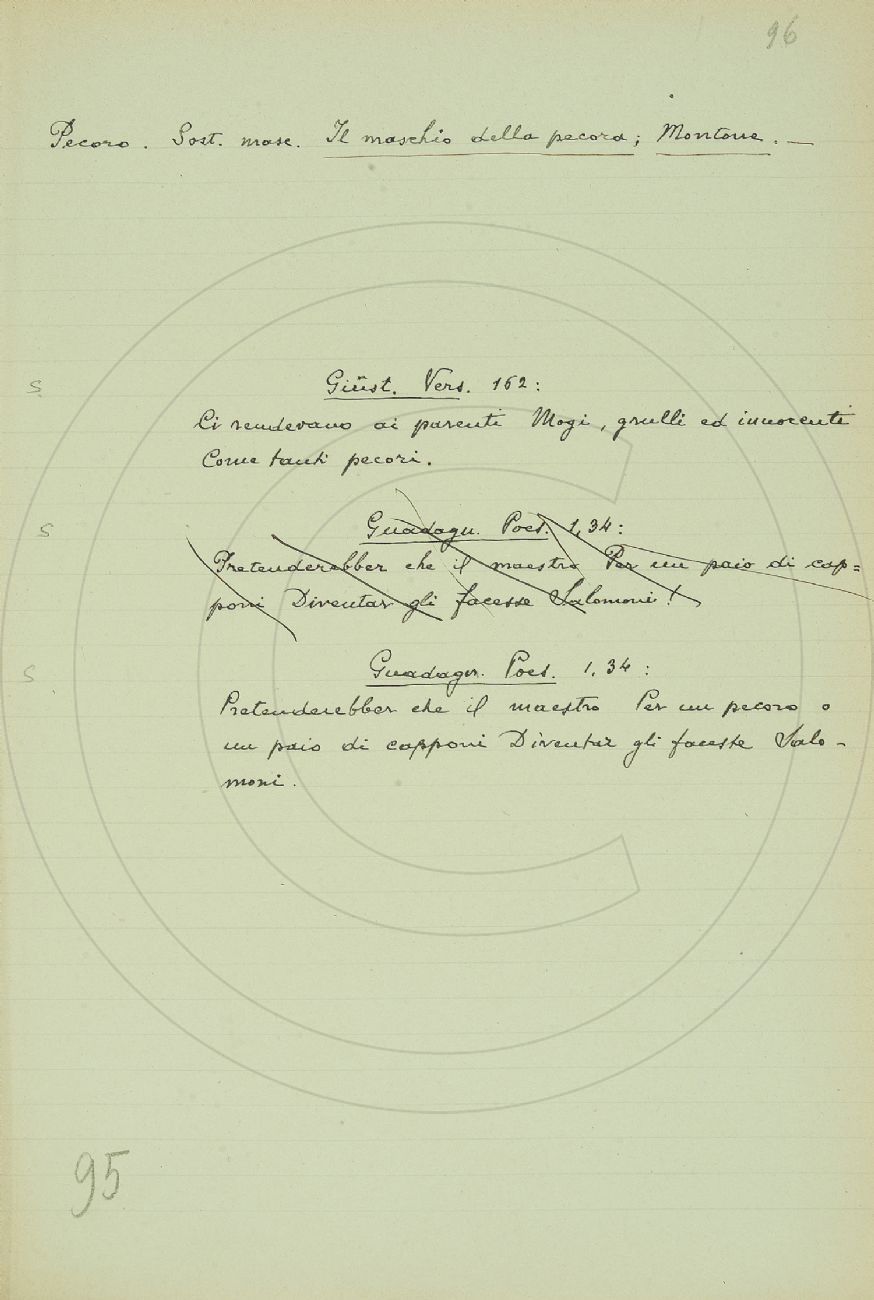 96
Pecoro. Sost. masc. Il maschio della pecora; Montone. —
S
Giust. Vers. 162:
Ci rendevano ai parenti Mogi, grulli ed innocenti
Come tanti pecori.
S
Guadagn. Poes. 1, 34:
Pretenderebber che il maestro Per un paio di cap=
poni Diventar gli facesse Salomoni!
S
Guadagn. Poes. 1, 34:
Pretenderebber che il maestro Per un pecoro o
un paio di capponi Diventar gli facesse Salo-
moni.
95